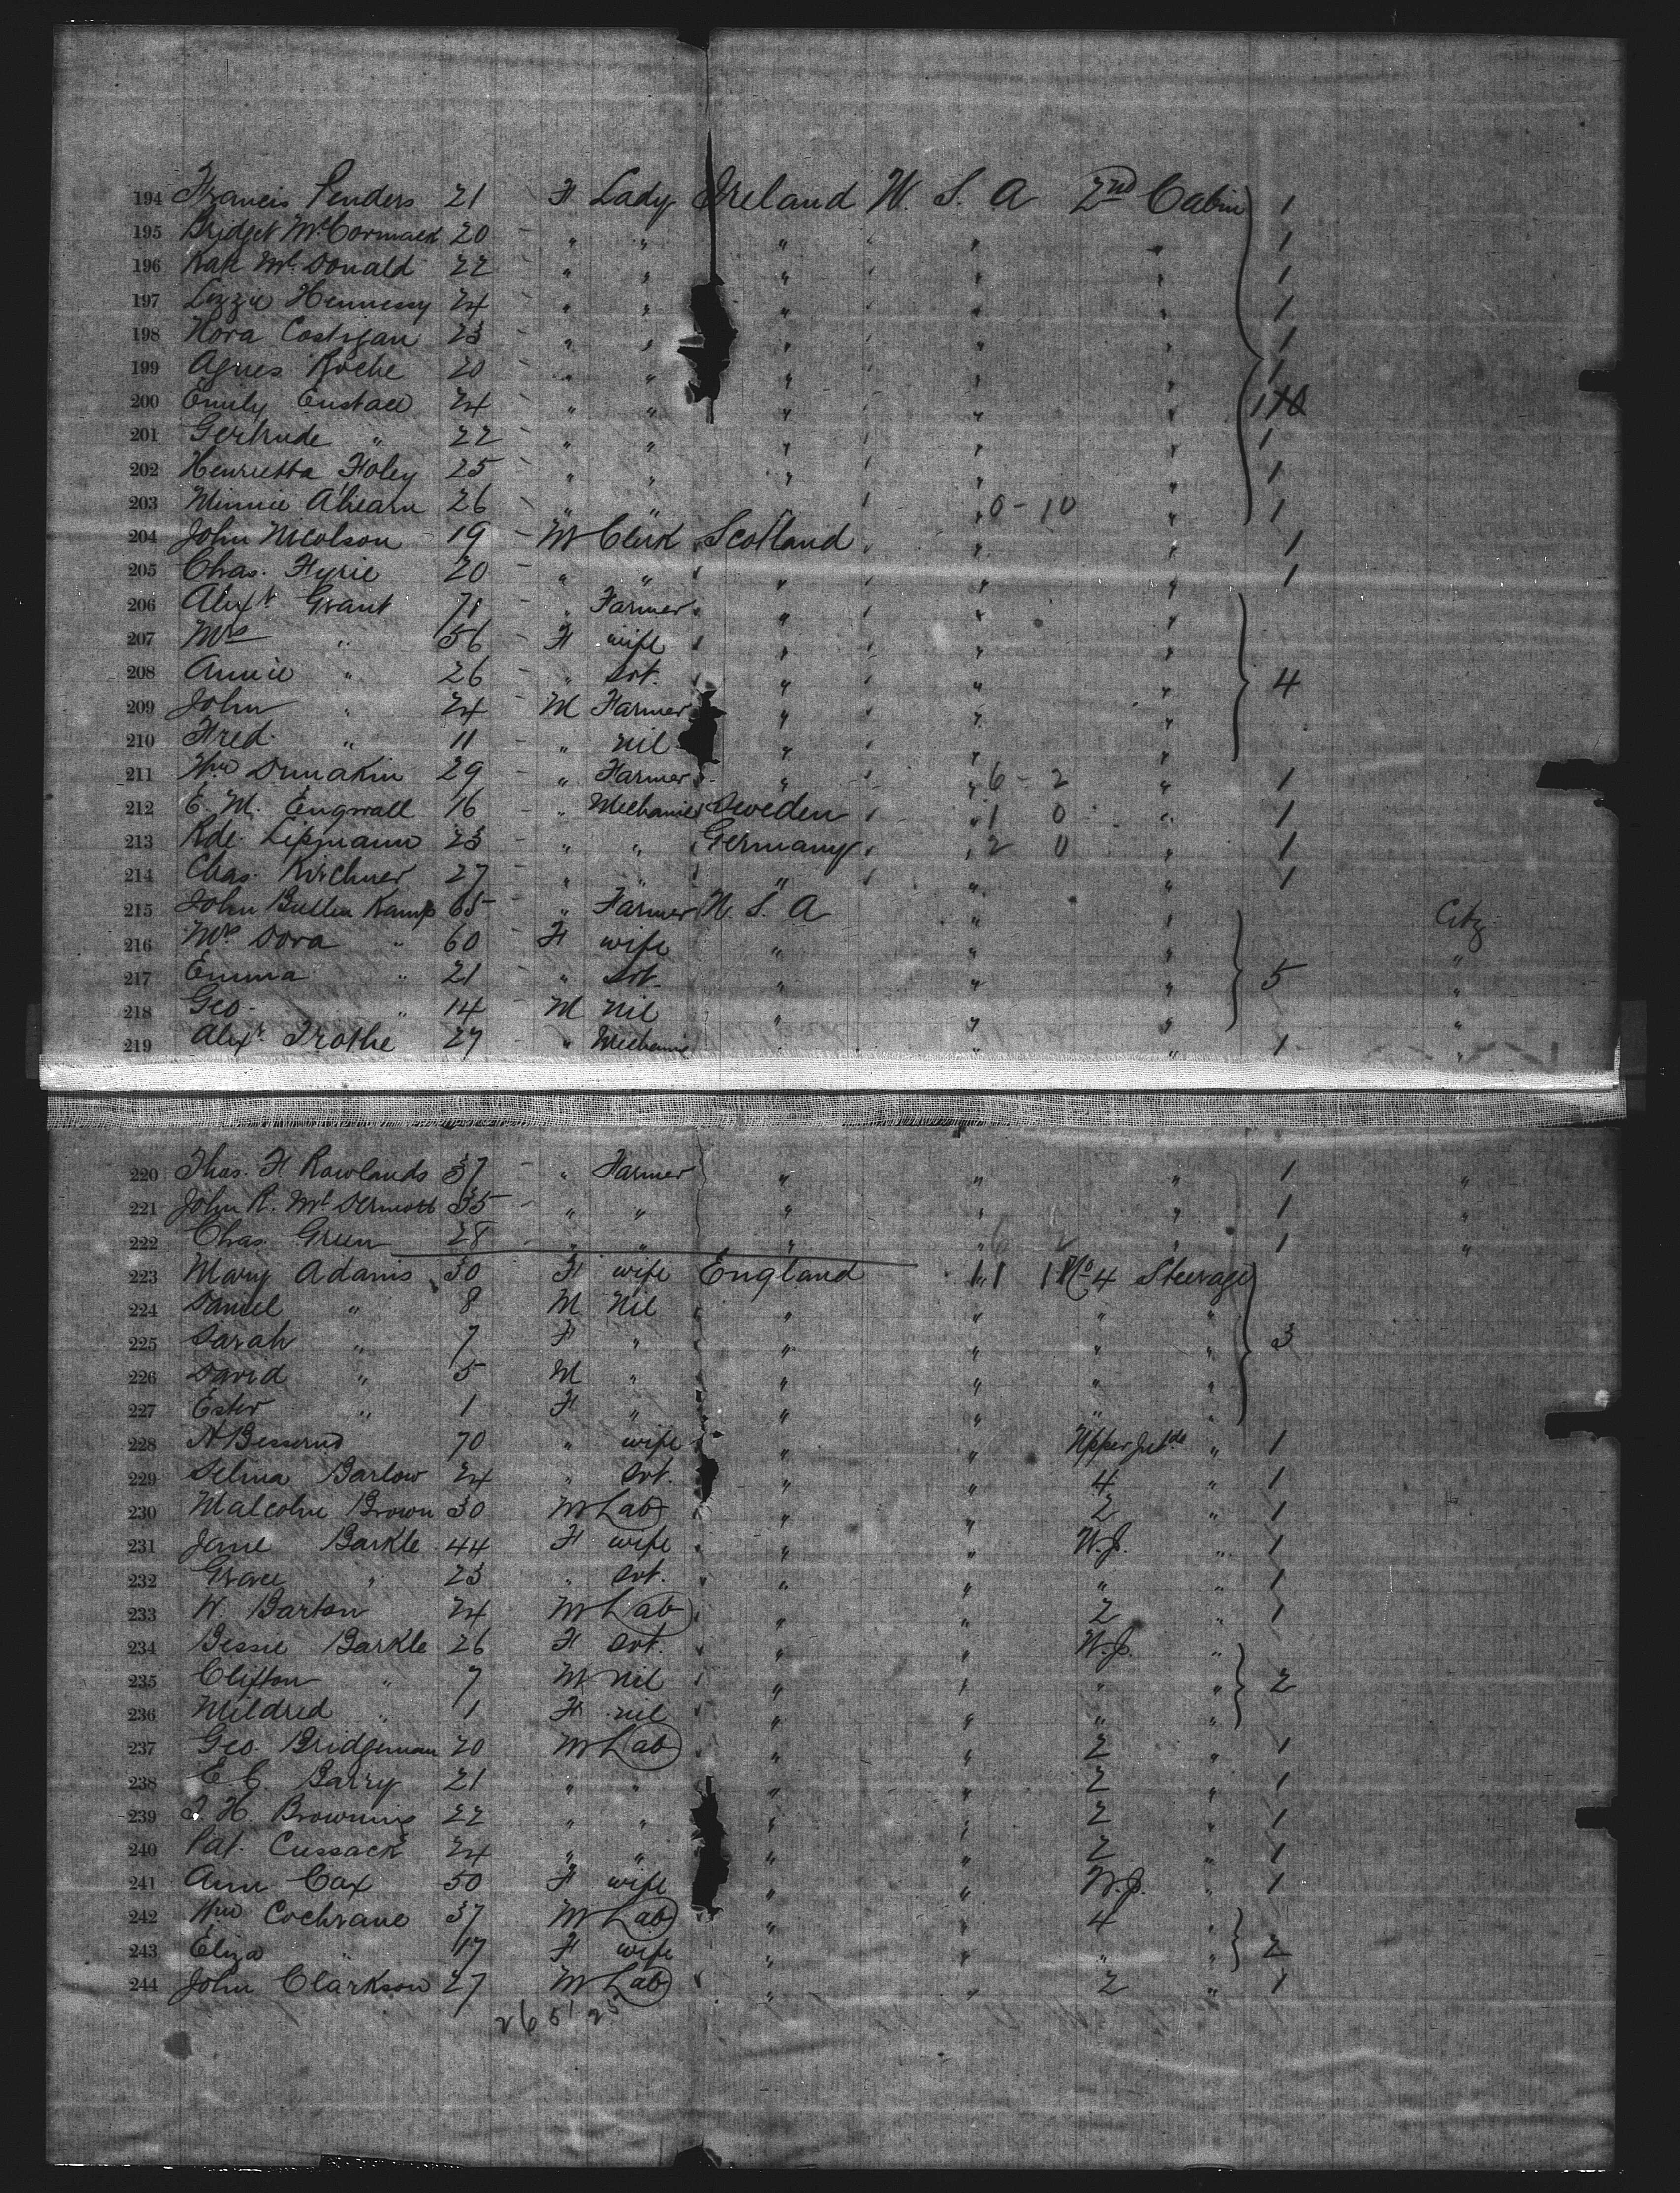 194 Francis Penders 21 F Lady Ireland U. S. A 2nd Cabin 1
195 Bridget McCormack 20 " " " " " 1
196 Kate McDonald 22 " " " " " 1
197 Lizzie Hennessy 24 " " " " " 1
198 Nora Costigan 23 " " " " " 1
199 Agnes Roche 20 " " " " " 1
200 Emily Eustace 24 " " " " " 1
201 Gertrude " 22 " " " " " 1
202 Henrietta Foley 25 " " " " " 1
203 Minnie Ahearn 26 " " " " 0-10 " 1
204 John Nicolson 19 M Clerk Scotland " " 1
205 Chas. Fyrie 20 " " " " " 1
206 Alexr Grant 71 " Farmer " " "
207 Mrs " 56 F wife " " "
208 Annie " 26 " Svt. " " " 4
209 John " 24 M Farmer " " "
210 Fred " 11 " nil " " "
211 Wm Dunakin 29 " Farmer " " 6-2 " 1
212 E. M. Engwall 16 " Mechanic Sweden " 1 0 " 1
213 Rde. Lipmann 23 " " Germany " 2 0 " 1
214 Chas. Kirchner 27 " " " " " 1
215 John Bullen Kamp 65 " Farmer U. S. A " " Citz
216 Mrs Dora " 60 F wife " " " "
217 Emma " 21 " Svt. " " " 5 "
218 Geo. " 14 M nil " " " "
219 Alexr. Trothe 27 " Mechanic " " 1 "
220 Thos. H Rowlands 37 " Farmer " " " 1 "
221 John R. McDermott 35 " " " " " 1 "
222 Chas. Green 28 " " " " 6 2 " 1 "
223 Mary Adams 30 F wife England " 11 1 No 4 Steerage
224 Daniel " 8 M Nil " " " "
225 Sarah " 7 F " " " " " 3
226 David " 5 M " " " " "
227 Ester " 1 F " " " " "
228 70 " wife " " Upper " 1
229 Selina Barlow 24 " Svt. " " 4 " 1
230 Malcolm Brown 30 M Lab " " 2 " 1
231 Jane Barkle 44 F wife " " " 1
232 Grace " 23 " Svt. " " " " 1
233 W. Barton 24 M Lab " " 2 " 1
234 Bessie Barkle 26 F Svt. " " "
235 Clifton " 7 M nil " " " " 2
236 Mildred " 1 F nil " " " "
237 Geo. Bridgeman 20 M Lab " " 2 " 1
238 E. C. Barry 21 " " " " 2 " 1
239 J H. Browning 22 " " " " 2 " 1
240 Pat. Cussack 24 " " " " 2 " 1
241 Ann Cox 50 F wife " " " 1
242 Wm Cochrane 37 M Lab " " 4 "
243 Eliza " 17 F wife " " " " 2
244 John Clarkson 27 M Lab " " 2 " 1
26 51 25